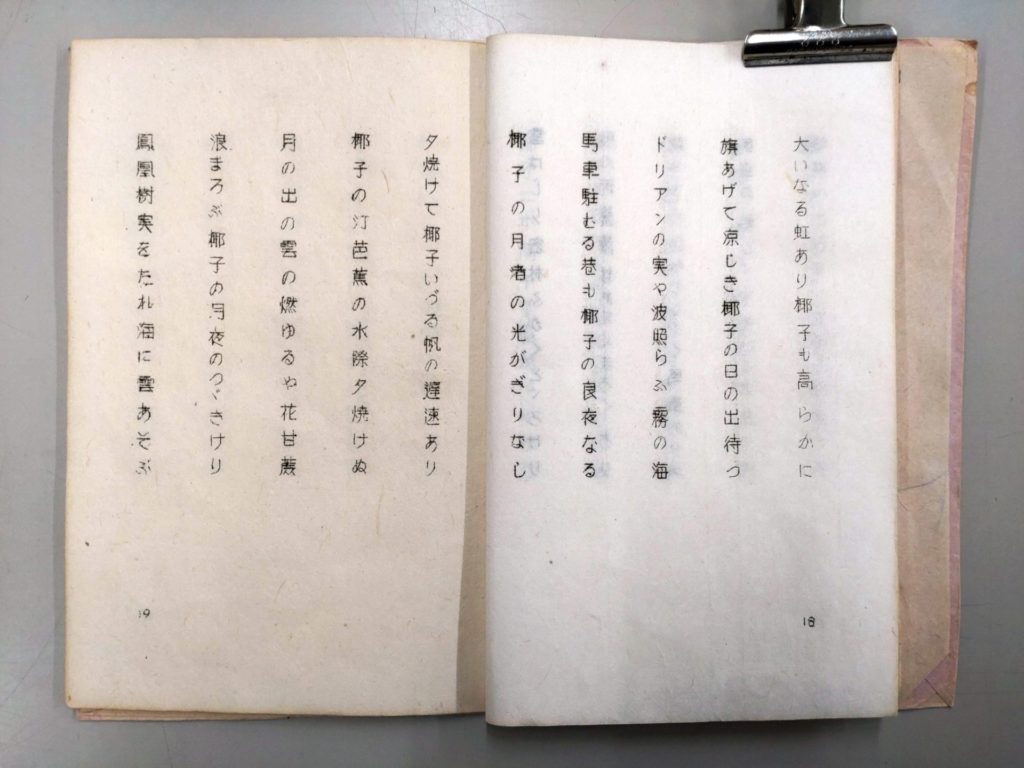 大いなる虹あり椰子も高らかに
旗あげて凉しき椰子の日の出待つ
ドリアンの実や波照らふ霧の海
馬車駐むる巷も椰子の良夜なる
椰子の月渚の光がぎりなし
18
夕焼けて椰子いづる帆の遅速あり
椰子の汀芭蕉の水除夕焼けぬ
月の出の雲の燃ゆるや花甘蔗
浪まろぶ椰子の月夜のつゞきけり
鳳凰樹実をたれ海に雲あそぶ
19